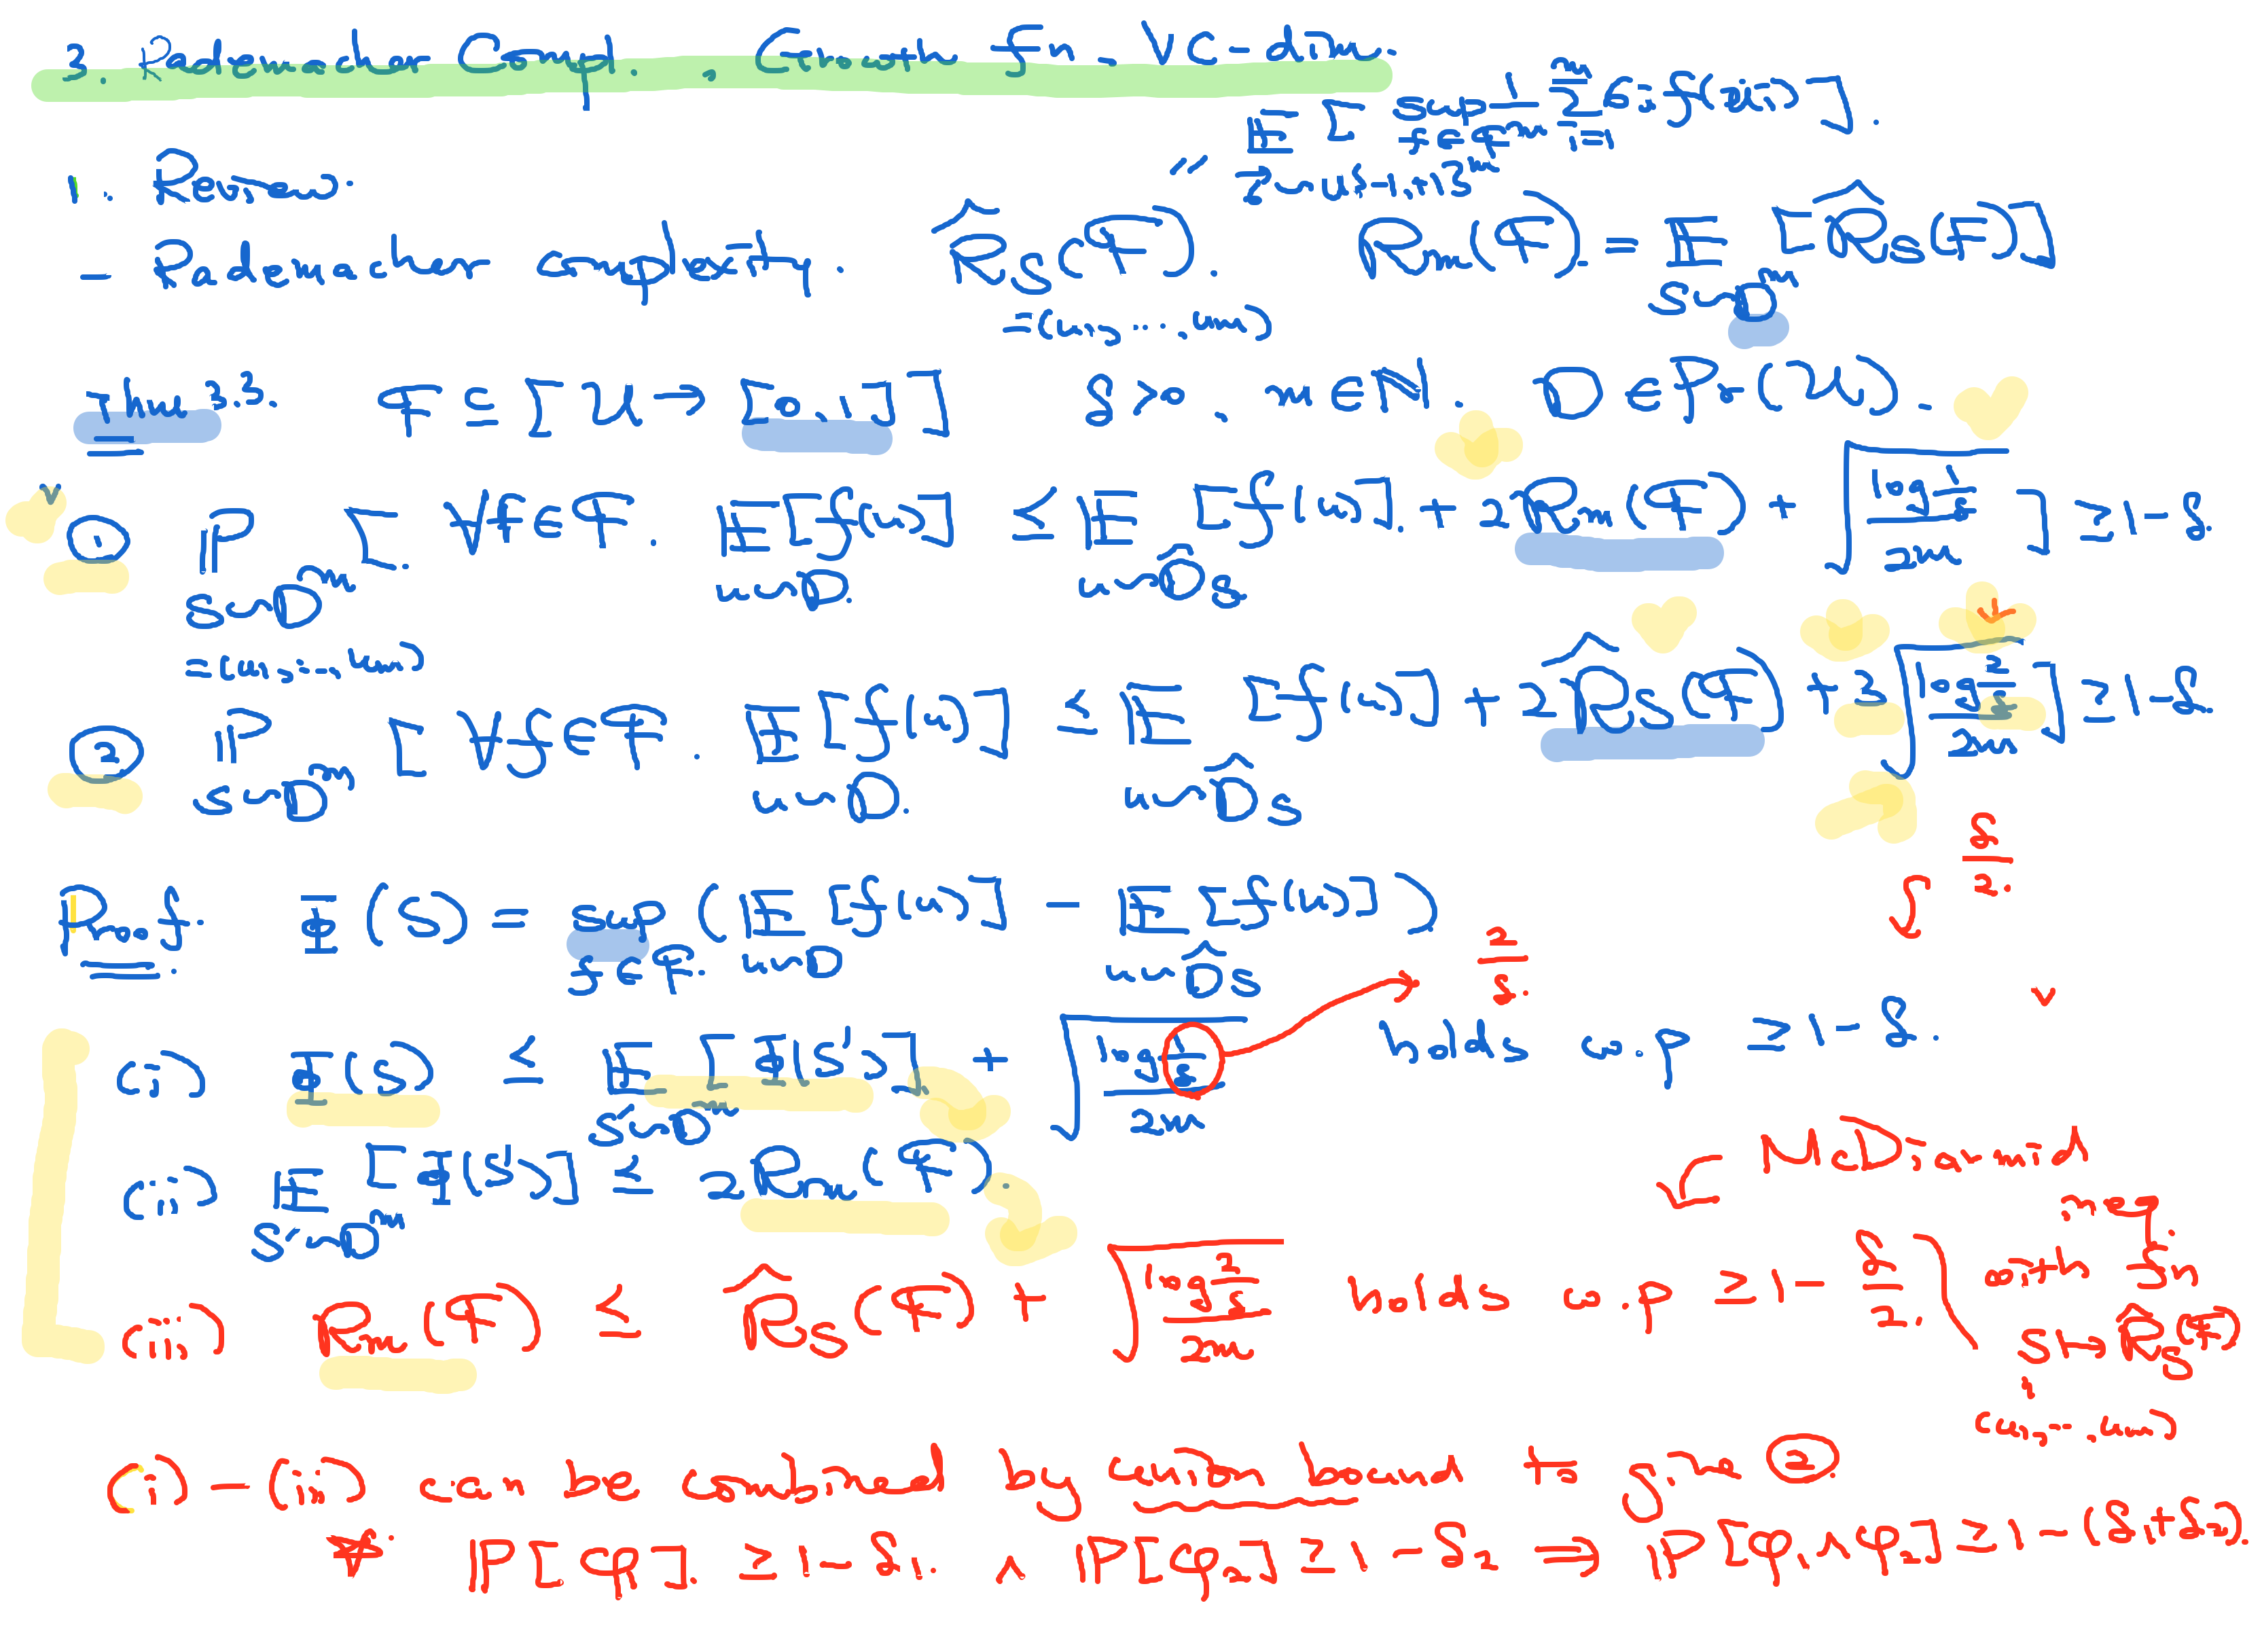 3. Rademacher Compl., Growth fn, VC-dim.
1. Review.
- Rademacher complexity. R̂_S(F). R_m(F) = E_{S~D^m} [R̂_S(F)]
=(u₁, ..., u_m)
" E_{Σ~U{-1,+1}^m} [ sup_{f∈F} 1/m Σ_{i=1}^m σ_i f(u_i) ].
Thm 3.3. F ⊆ [U → [0,1]] δ>0, m∈N. D ∈ Pr(U).
① P_{S~D^m} [ ∀f∈F. E_{u~D}[f(u)] ≤ E_{u~D̂_S} [f(u)] + 2R_m(F) + √(log 1/δ / 2m) ] ≥ 1-δ.
=(u₁, ..., u_m)
② P_{S~D^m} [ ∀f∈F. E_{u~D}[f(u)] ≤ E_{u~D̂_S} [f(u)] + 2R̂_S(F) + 3√(log 2/δ / 2m) ] ≥ 1-δ.
δ/2.
Proof. Φ(S) = sup_{f∈F} ( E_{u~D} [f(u)] - E_{u~D̂_S} [f(u)] )
2/δ.
(i) Φ(S) ≤ E_{S'~D^m} [Φ(S')] + √(log 1/δ / 2m) holds w.p ≥ 1-δ.
(ii) E_{S'~D^m} [Φ(S')] ≤ 2R_m(F).
McDiarmid ineq.
(iii) R_m(F) ≤ R̂_S(F) + √(log 2/δ / 2m) holds w.p ≥ 1 - δ/2. ) with fn
S ↦ R̂_S(F)
"
(u₁, ..., u_m)
(i) - (iii) can be combined by union bound to give ②.
* P[φ₁] ≥ 1-δ₁. ∧ P[φ₂] ≥ 1-δ₂ ⇒ P[φ₁∧φ₂] ≥ 1-(δ₁+δ₂).